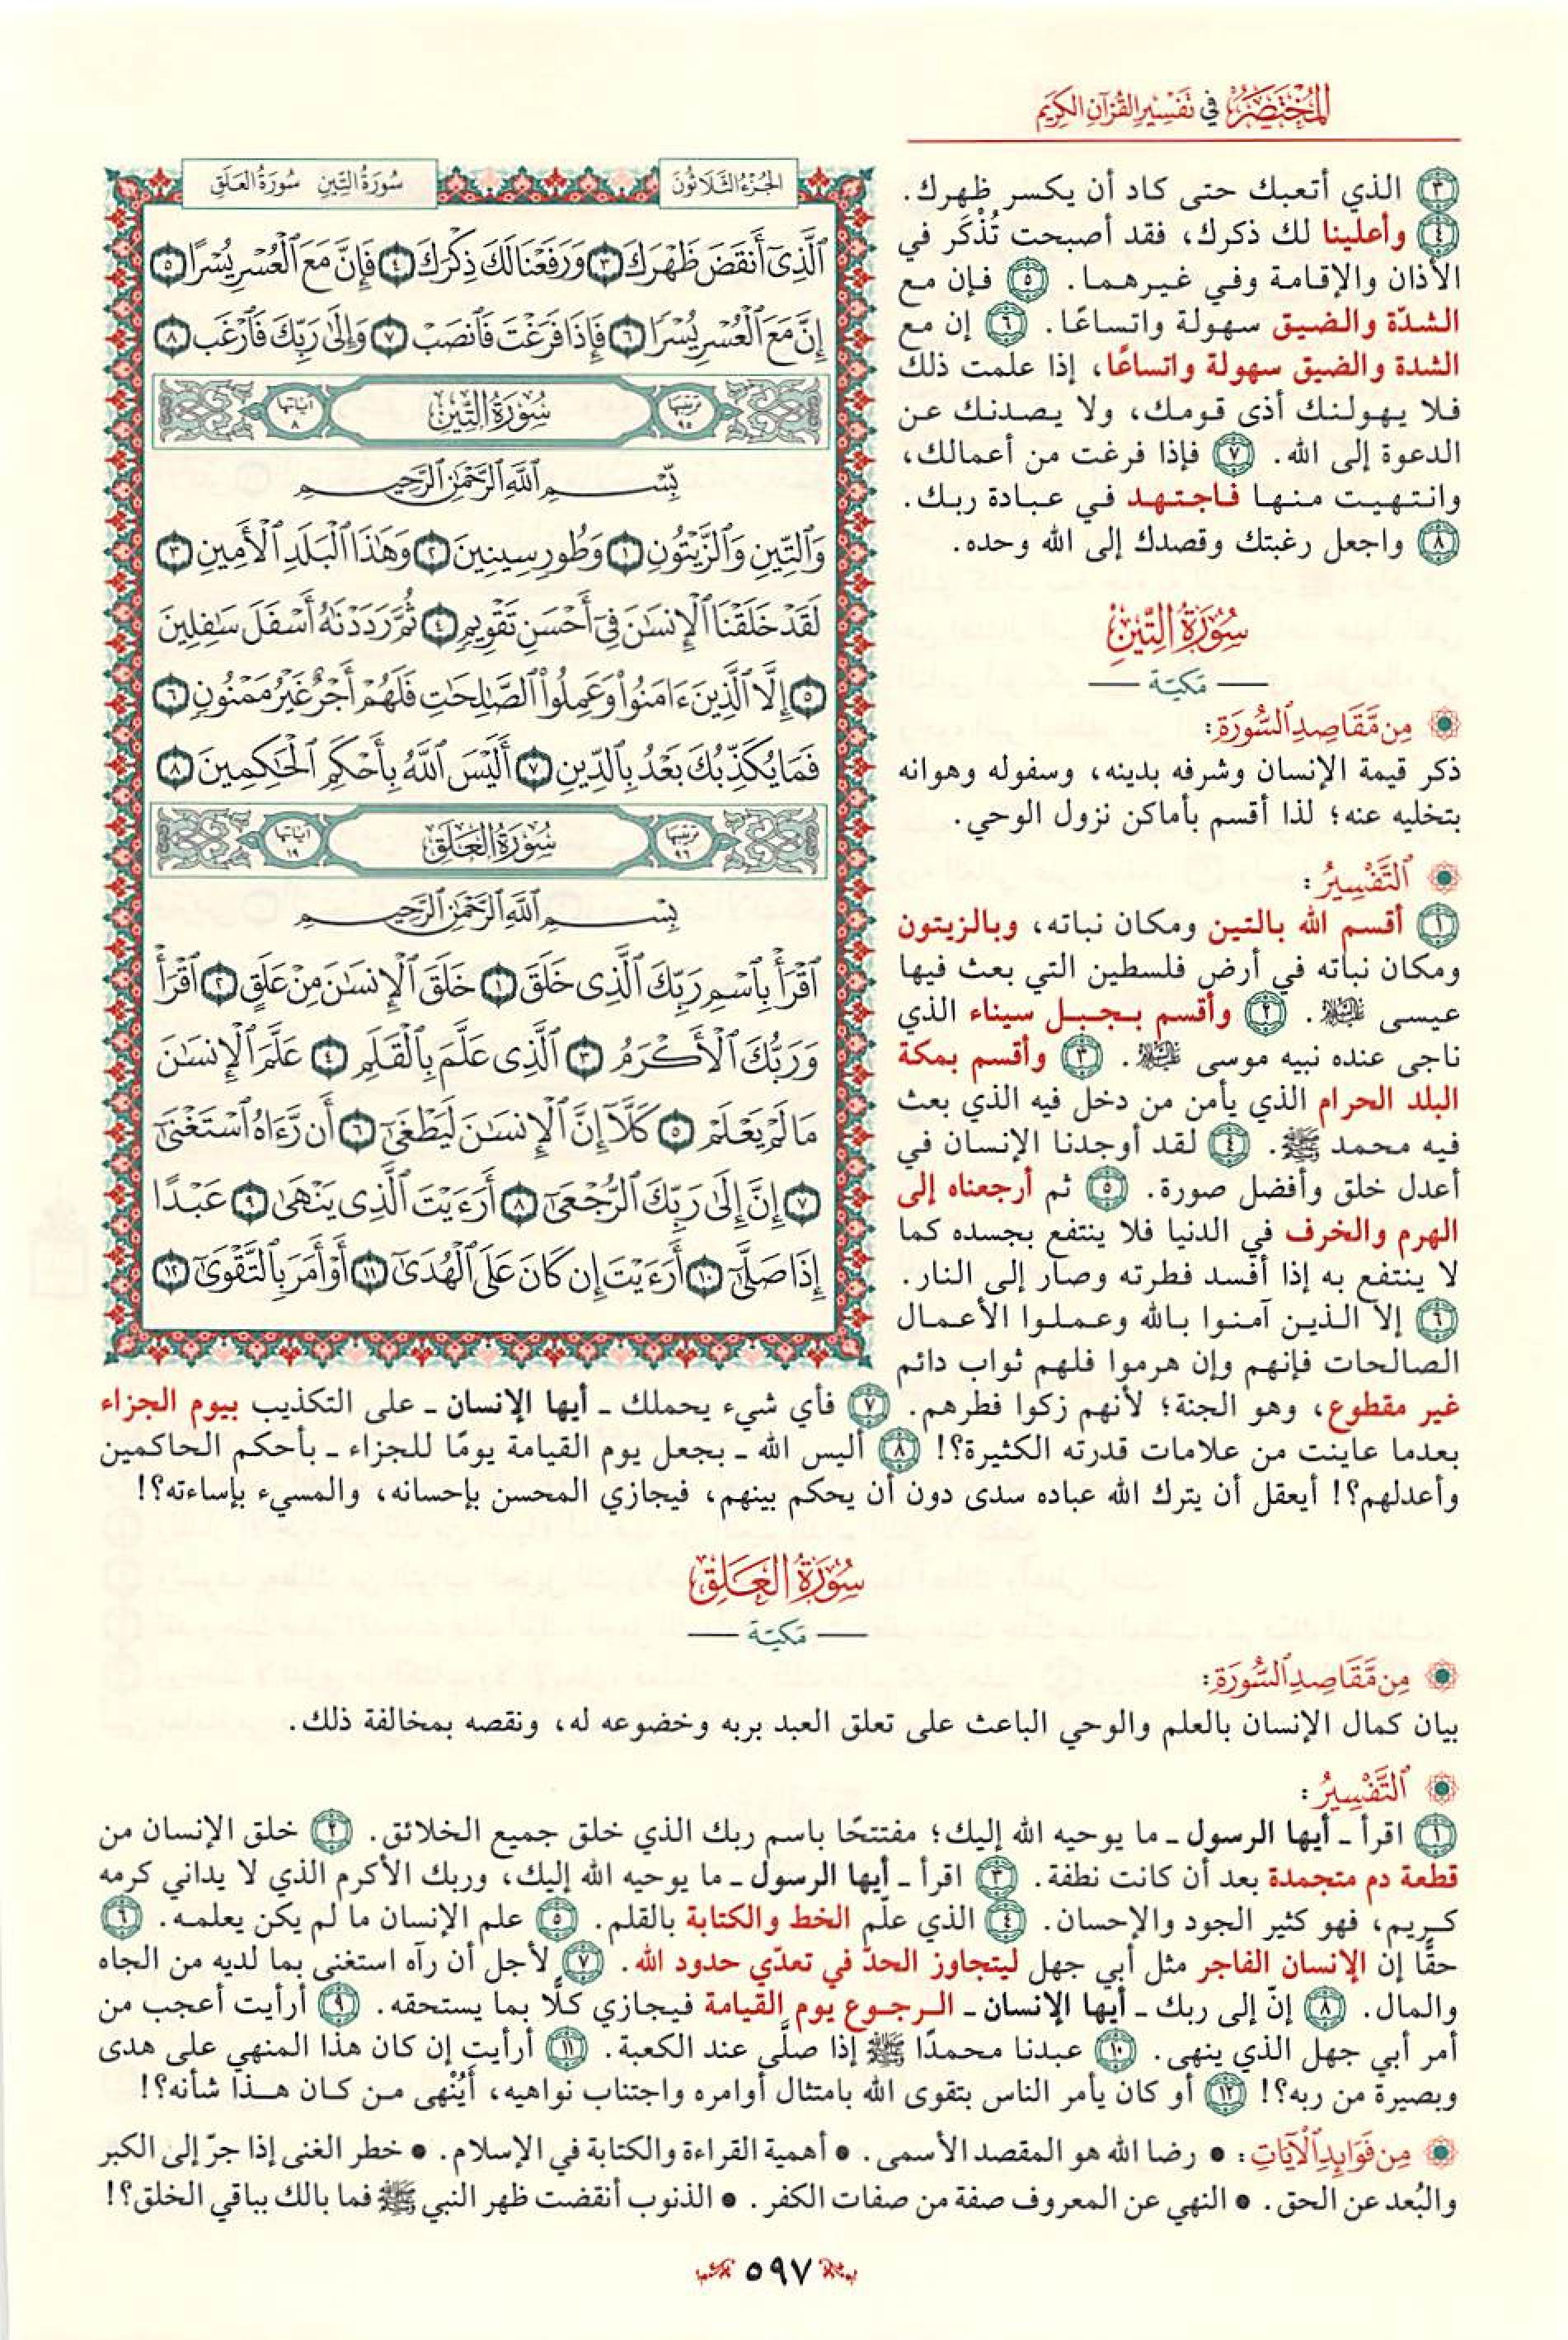 المختصر في تفسير القرآن الكريم
الجزء الثلاثون
سورة التين سورة العلق
ٱلَّذِىٓ أَنقَضَ ظَهْرَكَ ٣ وَرَفَعْنَا لَكَ ذِكْرَكَ ٤ فَإِنَّ مَعَ ٱلْعُسْرِ يُسْرًا ٥
إِنَّ مَعَ ٱلْعُسْرِ يُسْرًا ٦ فَإِذَا فَرَغْتَ فَٱنصَبْ ٧ وَإِلَىٰ رَبِّكَ فَٱرْغَب ٨
ترتيبها ٩٥ سُورَةُ التِّينِ آياتها ٨
بِسْمِ ٱللَّهِ ٱلرَّحْمَٰنِ ٱلرَّحِيمِ
وَٱلتِّينِ وَٱلزَّيْتُونِ ١ وَطُورِ سِينِينَ ٢ وَهَٰذَا ٱلْبَلَدِ ٱلْأَمِينِ ٣
لَقَدْ خَلَقْنَا ٱلْإِنسَٰنَ فِىٓ أَحْسَنِ تَقْوِيمٍ ٤ ثُمَّ رَدَدْنَٰهُ أَسْفَلَ سَٰفِلِينَ
٥ إِلَّا ٱلَّذِينَ ءَامَنُوا۟ وَعَمِلُوا۟ ٱلصَّٰلِحَٰتِ فَلَهُمْ أَجْرٌ غَيْرُ مَمْنُونٍ ٦
فَمَا يُكَذِّبُكَ بَعْدُ بِٱلدِّينِ ٧ أَلَيْسَ ٱللَّهُ بِأَحْكَمِ ٱلْحَٰكِمِينَ ٨
ترتيبها ٩٦ سُورَةُ العَلَقِ آياتها ١٩
بِسْمِ ٱللَّهِ ٱلرَّحْمَٰنِ ٱلرَّحِيمِ
ٱقْرَأْ بِٱسْمِ رَبِّكَ ٱلَّذِى خَلَقَ ١ خَلَقَ ٱلْإِنسَٰنَ مِنْ عَلَقٍ ٢ ٱقْرَأْ
وَرَبُّكَ ٱلْأَكْرَمُ ٣ ٱلَّذِى عَلَّمَ بِٱلْقَلَمِ ٤ عَلَّمَ ٱلْإِنسَٰنَ
مَا لَمْ يَعْلَمْ ٥ كَلَّآ إِنَّ ٱلْإِنسَٰنَ لَيَطْغَىٰٓ ٦ أَن رَّءَاهُ ٱسْتَغْنَىٰٓ
٧ إِنَّ إِلَىٰ رَبِّكَ ٱلرُّجْعَىٰٓ ٨ أَرَءَيْتَ ٱلَّذِى يَنْهَىٰ ٩ عَبْدًا
إِذَا صَلَّىٰٓ ١٠ أَرَءَيْتَ إِن كَانَ عَلَى ٱلْهُدَىٰٓ ١١ أَوْ أَمَرَ بِٱلتَّقْوَىٰٓ ١٢
٣ الذي أتعبك حتى كاد أن يكسر ظهرك.
٤ وأعلينا لك ذكرك، فقد أصبحت تُذْكَر في
الأذان والإقامة وفي غيرهما. ٥ فإن مع
الشدّة والضيق سهولة واتساعًا. ٦ إن مع
الشدة والضيق سهولة واتساعًا، إذا علمت ذلك
فلا يهولنك أذى قومك، ولا يصدنك عن
الدعوة إلى الله. ٧ فإذا فرغت من أعمالك،
وانتهيت منها فاجتهد في عبادة ربك.
٨ واجعل رغبتك وقصدك إلى الله وحده.
سُورَةُ التِّينِ
مكيّة
من مقاصد السورة:
ذكر قيمة الإنسان وشرفه بدينه، وسفوله وهوانه
بتخليه عنه؛ لذا أقسم بأماكن نزول الوحي.
التفسير:
١ أقسم الله بالتين ومكان نباته، وبالزيتون
ومكان نباته في أرض فلسطين التي بعث فيها
عيسى عليه السلام. ٢ وأقسم بجبل سيناء الذي
ناجى عنده نبيه موسى عليه السلام. ٣ وأقسم بمكة
البلد الحرام الذي يأمن من دخل فيه الذي بعث
فيه محمد ﷺ. ٤ لقد أوجدنا الإنسان في
أعدل خلق وأفضل صورة. ٥ ثم أرجعناه إلى
الهرم والخرف في الدنيا فلا ينتفع بجسده كما
لا ينتفع به إذا أفسد فطرته وصار إلى النار.
٦ إلا الذين آمنوا بالله وعملوا الأعمال
الصالحات فإنهم وإن هرموا فلهم ثواب دائم
غير مقطوع، وهو الجنة؛ لأنهم زكوا فطرهم. ٧ فأي شيء يحملك ـ أيها الإنسان ـ على التكذيب بيوم الجزاء
بعدما عاينت من علامات قدرته الكثيرة؟! ٨ أليس الله ـ بجعل يوم القيامة يومًا للجزاء ـ بأحكم الحاكمين
وأعدلهم؟! أيعقل أن يترك الله عباده سدى دون أن يحكم بينهم، فيجازي المحسن بإحسانه، والمسيء بإساءته؟!
سُورَةُ العَلَقِ
مكيّة
من مقاصد السورة:
بيان كمال الإنسان بالعلم والوحي الباعث على تعلق العبد بربه وخضوعه له، ونقصه بمخالفة ذلك.
التفسير:
١ اقرأ ـ أيها الرسول ـ ما يوحيه الله إليك؛ مفتتحًا باسم ربك الذي خلق جميع الخلائق. ٢ خلق الإنسان من
قطعة دم متجمدة بعد أن كانت نطفة. ٣ اقرأ ـ أيها الرسول ـ ما يوحيه الله إليك، وربك الأكرم الذي لا يداني كرمه
كريم، فهو كثير الجود والإحسان. ٤ الذي علّم الخط والكتابة بالقلم. ٥ علم الإنسان ما لم يكن يعلمه. ٦
حقًّا إن الإنسان الفاجر مثل أبي جهل ليتجاوز الحدّ في تعدّي حدود الله. ٧ لأجل أن رآه استغنى بما لديه من الجاه
والمال. ٨ إنّ إلى ربك ـ أيها الإنسان ـ الرجوع يوم القيامة فيجازي كلًّا بما يستحقه. ٩ أرأيت أعجب من
أمر أبي جهل الذي ينهى. ١٠ عبدنا محمدًا ﷺ إذا صلَّى عند الكعبة. ١١ أرأيت إن كان هذا المنهي على هدى
وبصيرة من ربه؟! ١٢ أو كان يأمر الناس بتقوى الله بامتثال أوامره واجتناب نواهيه، أَيُنْهى من كان هذا شأنه؟!
من فوائد الآيات: • رضا الله هو المقصد الأسمى. • أهمية القراءة والكتابة في الإسلام. • خطر الغنى إذا جرّ إلى الكبر
والبُعد عن الحق. • النهي عن المعروف صفة من صفات الكفر. • الذنوب أنقضت ظهر النبي ﷺ فما بالك بباقي الخلق؟!
٥٩٧